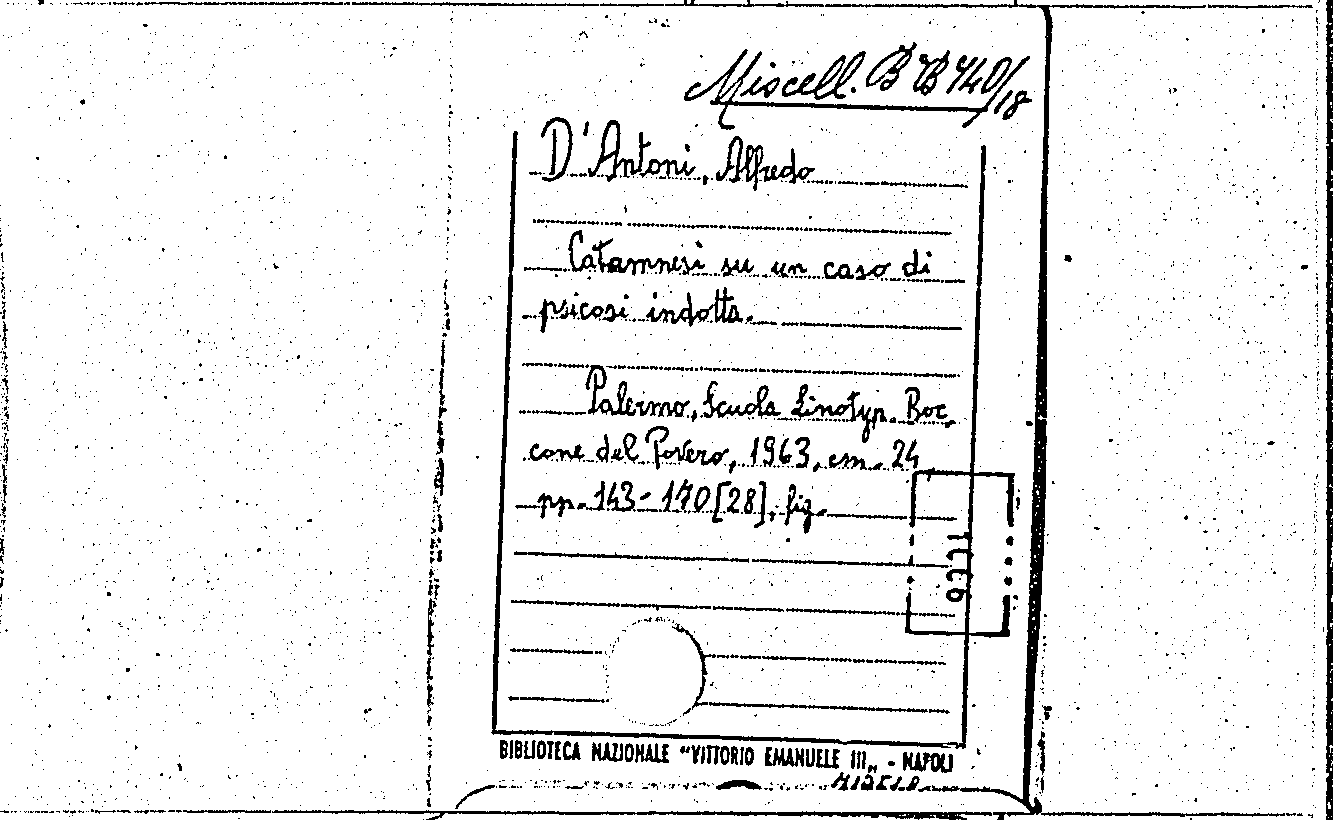 Miscell. B B 740/18
D'Antoni, Alfredo
Catamnesi su un caso di
psicosi indotta.
Palermo, Scuola Linotyp. Boc,
cone del Povero, 1963, cm. 24,
pp. 143-170 [28], fig.
BIBLIOTECA NAZIONALE "VITTORIO EMANUELE III„ - NAPOLI